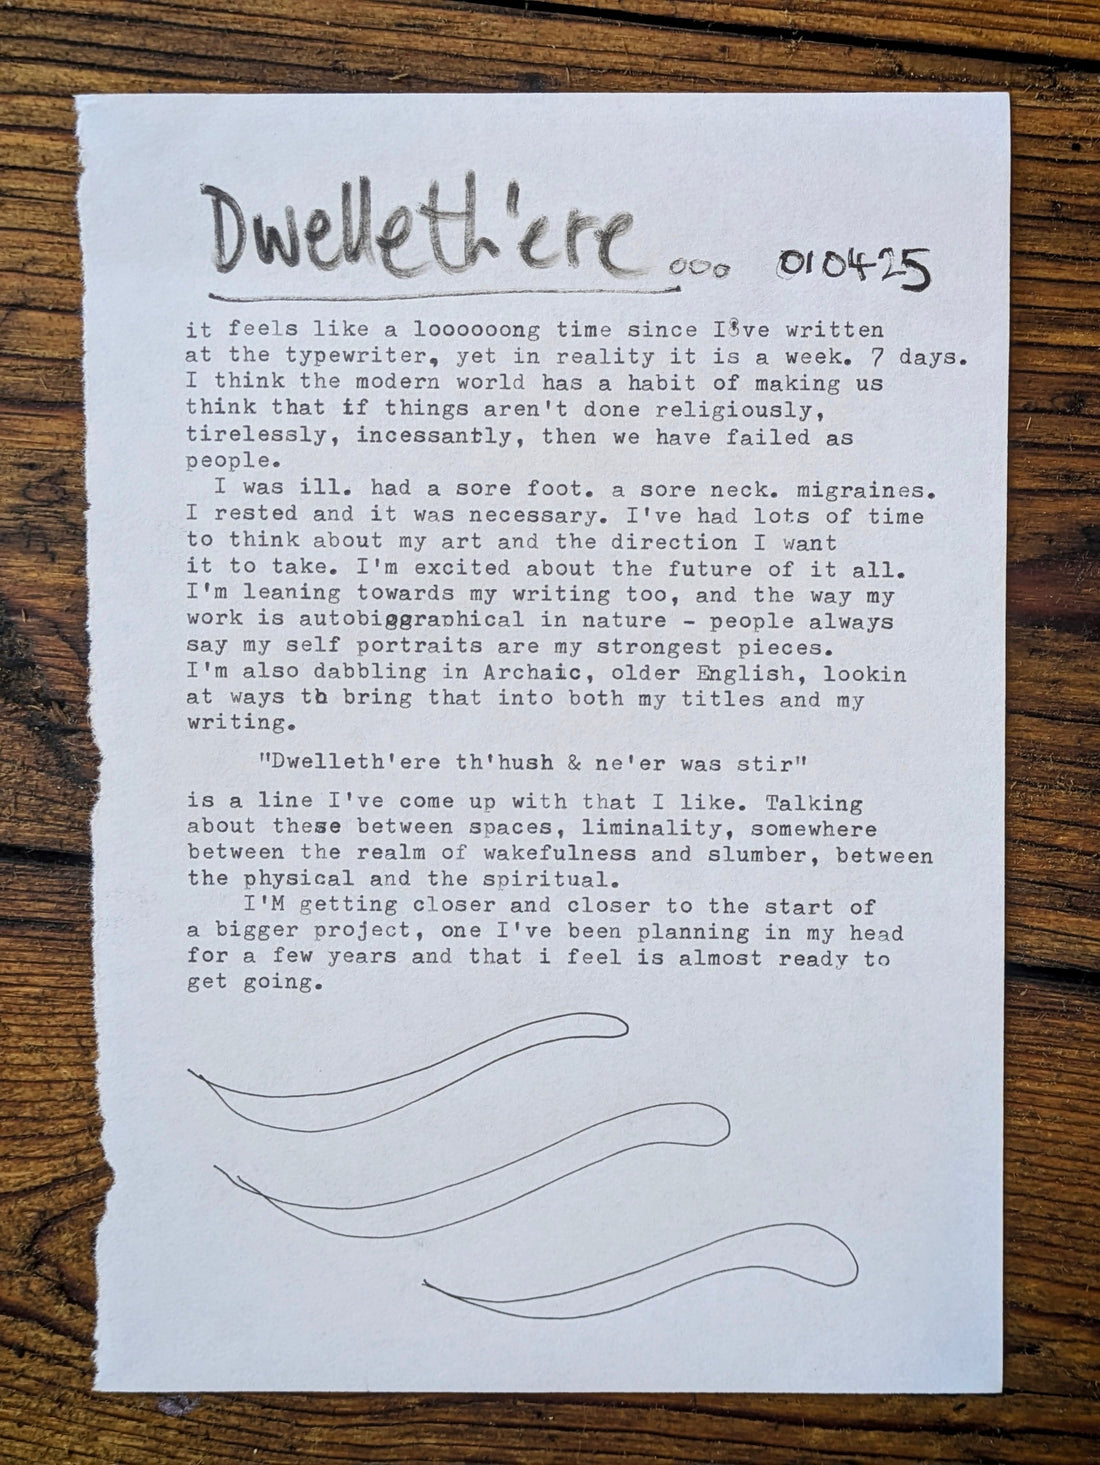 Dwelleth'ere... 010425
it feels like a loooooong time since I've written
at the typewriter, yet in reality it is a week. 7 days.
I think the modern world has a habit of making us
think that if things aren't done religiously,
tirelessly, incessantly, then we have failed as
people.
I was ill. had a sore foot. a sore neck. migraines.
I rested and it was necessary. I've had lots of time
to think about my art and the direction I want
it to take. I'm excited about the future of it all.
I'm leaning towards my writing too, and the way my
work is autobiggraphical in nature - people always
say my self portraits are my strongest pieces.
I'm also dabbling in Archaic, older English, lookin
at ways to bring that into both my titles and my
writing.
"Dwelleth'ere th'hush & ne'er was stir"
is a line I've come up with that I like. Talking
about these between spaces, liminality, somewhere
between the realm of wakefulness and slumber, between
the physical and the spiritual.
I'M getting closer and closer to the start of
a bigger project, one I've been planning in my head
for a few years and that i feel is almost ready to
get going.